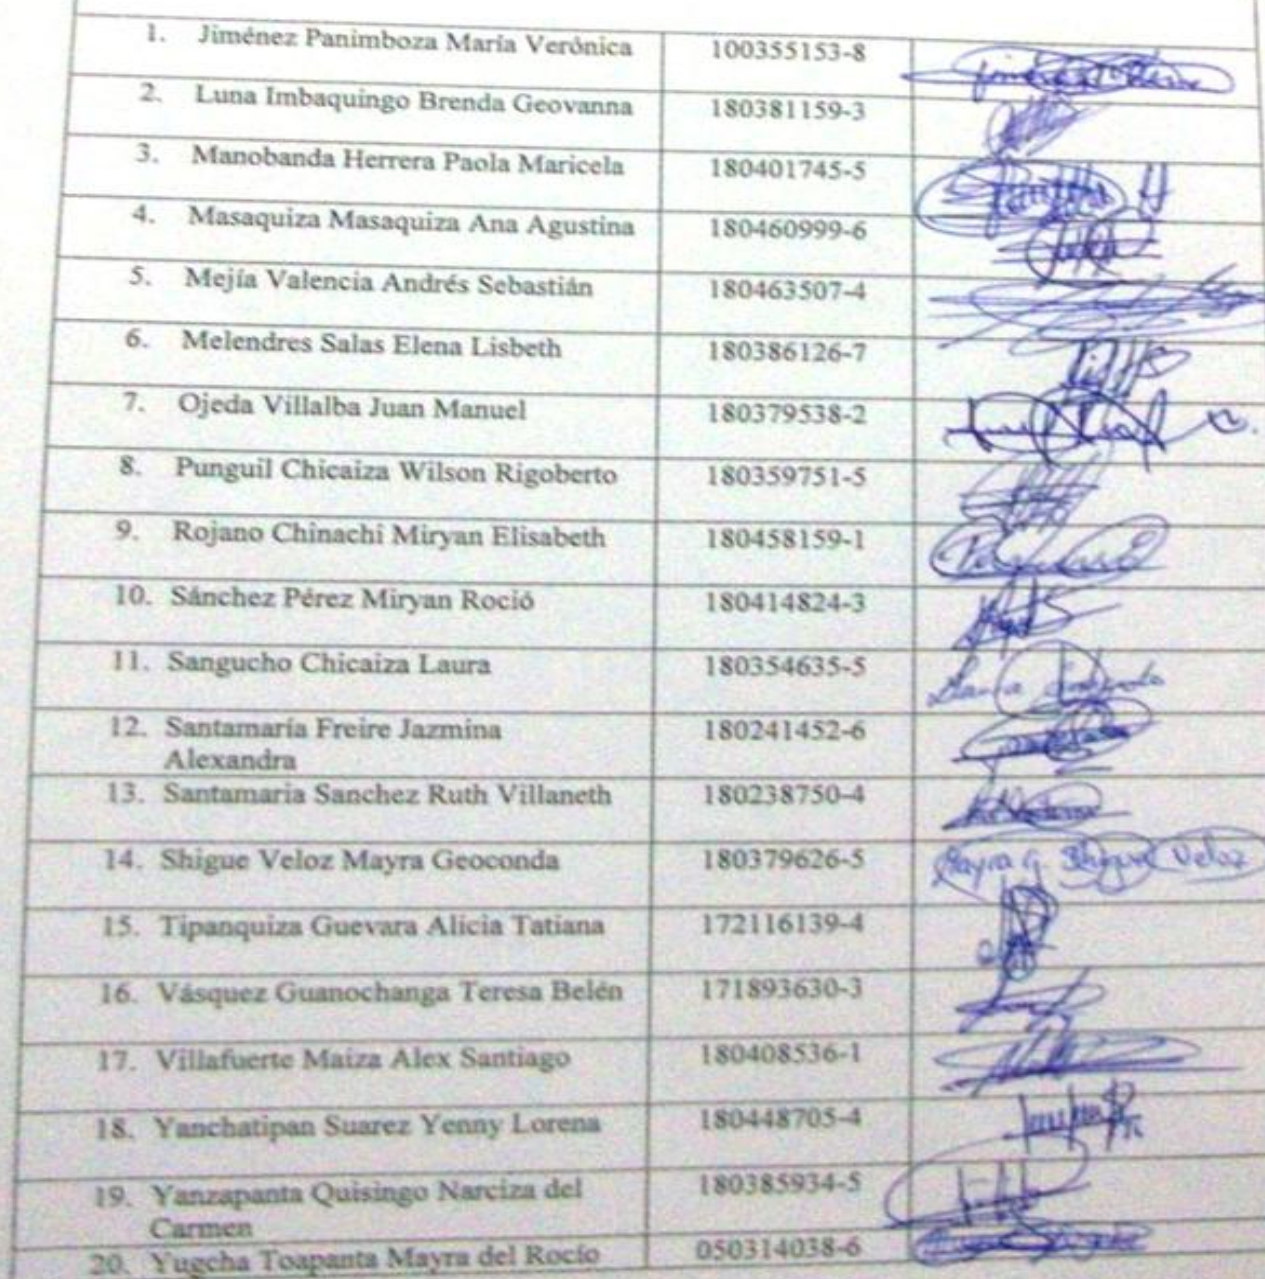 1. Jiménez Panimboza María Verónica 100355153-8
2. Luna Imbaquingo Brenda Geovanna 180381159-3
3. Manobanda Herrera Paola Maricela 180401745-5
4. Masaquiza Masaquiza Ana Agustina 180460999-6
5. Mejía Valencia Andrés Sebastián 180463507-4
6. Melendres Salas Elena Lisbeth 180386126-7
7. Ojeda Villalba Juan Manuel 180379538-2
8. Punguil Chicaiza Wilson Rigoberto 180359751-5
9. Rojano Chinachi Miryan Elisabeth 180458159-1
10. Sánchez Pérez Miryan Roció 180414824-3
11. Sangucho Chicaiza Laura 180354635-5
12. Santamaría Freire Jazmina 180241452-6
Alexandra
13. Santamaria Sanchez Ruth Villaneth 180238750-4
14. Shigue Veloz Mayra Geoconda 180379626-5 Mayra G. Shigue Veloz
15. Tipanquiza Guevara Alicia Tatiana 172116139-4
16. Vásquez Guanochanga Teresa Belén 171893630-3
17. Villafuerte Maiza Alex Santiago 180408536-1
18. Yanchatipan Suarez Yenny Lorena 180448705-4
19. Yanzapanta Quisingo Narciza del 180385934-5
Carmen
20. Yugcha Toapanta Mayra del Rocío 050314038-6